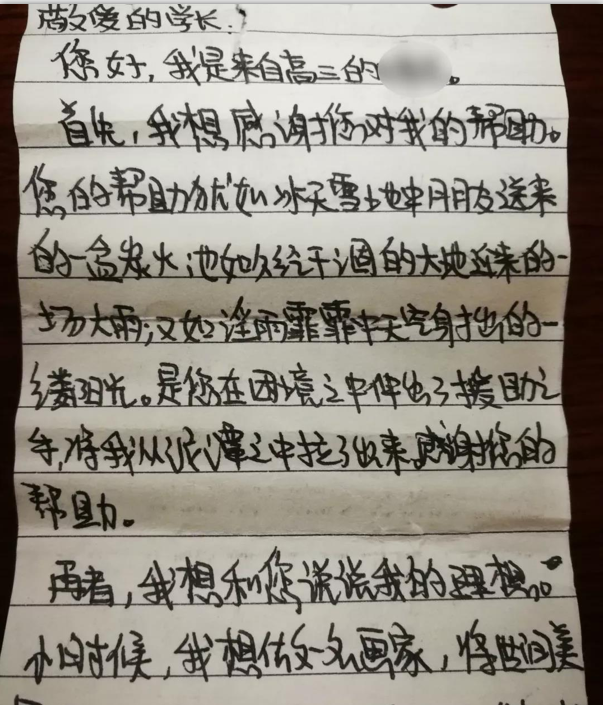 敬爱的学长:
您好,我是来自高三的
首先,我想感谢您对我的帮助。
您的帮助就如冰天雪地中朋友送来
的一盆炭火;也如久给干涸的大地迎来的一
场大雨;又如淫雨霏霏中天空射出的一
缕阳光。是您在困境之中伸出了援助之
手,将我从泥潭之中拉了出来。感谢您的
帮助。
再者,我想和您说说我的理想。
小时候,我想做一名画家,将世间美